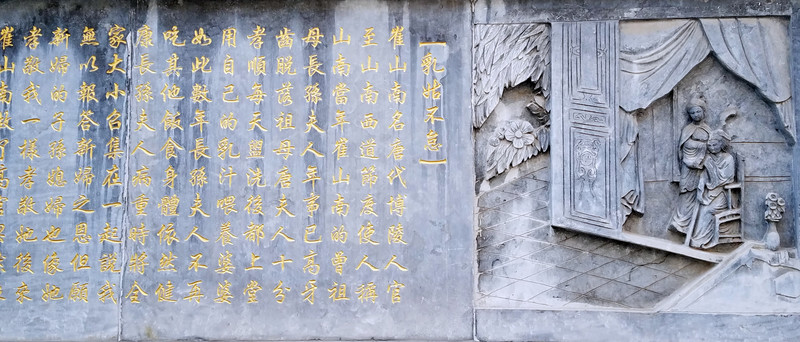 乳姑不怠
崔山南名唐代博陵人官
至山南西道節度使人稱
山南當年崔山南的曾祖
母長孫夫人年事已高牙
齒脫落祖母唐夫人十分
孝順每天盥洗後都上堂
用自己的乳汁喂養婆婆
如此數年長孫夫人不再
吃其他飯食身體依然健
康長孫夫人病重時將全
家大小召集在一起說我
無以報答新婦之恩但願
新婦的子孫媳婦也像她
孝敬我一樣孝敬她後來
崔山南